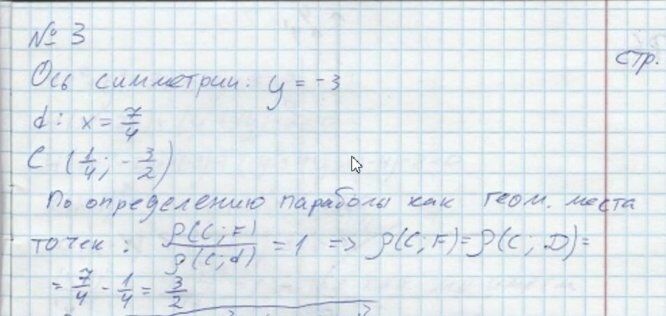 № 3
стр.
Ось симметрии: y = -3
d: x = 7/4
C (1/4; -3/2)
По определению параболы как геом. места
точек: ρ(C; F)/ρ(C; d) = 1 => ρ(C; F) = ρ(C; D) =
= 7/4 - 1/4 = 3/2